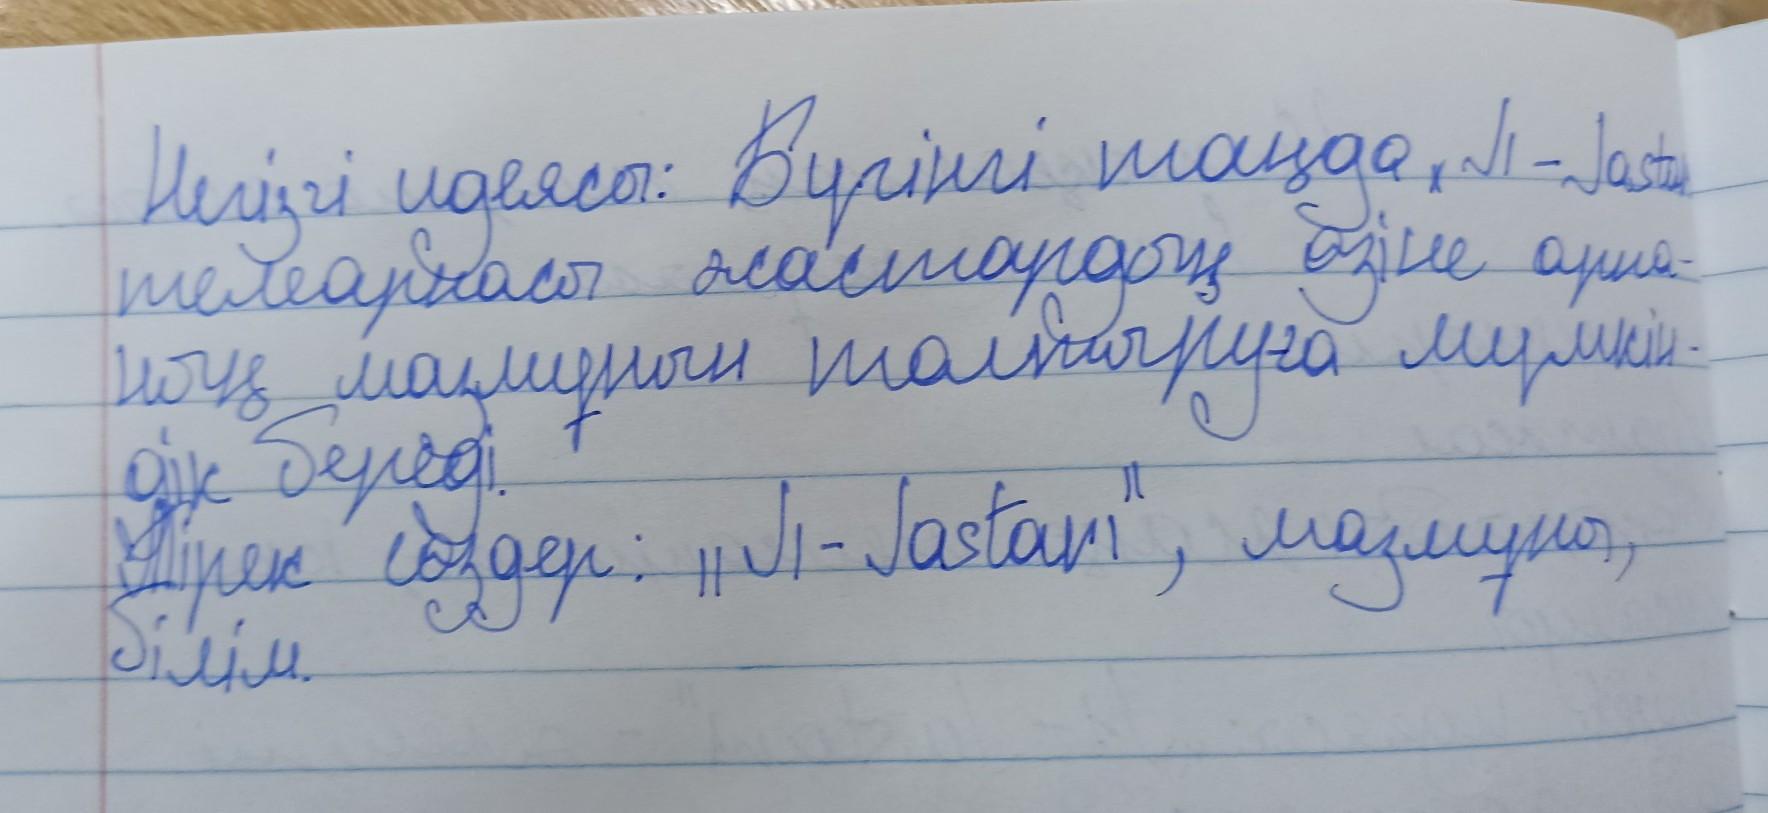 Негізгі идеясы: Бүгінгі таңда „J1-Jastar
телеарнасы жастардың өзіне арна-
ның мазмұнын толтыруға мүмкін-
дік береді.
Тірек сөздер: „J1-Jastari", мазмұны,
білім.